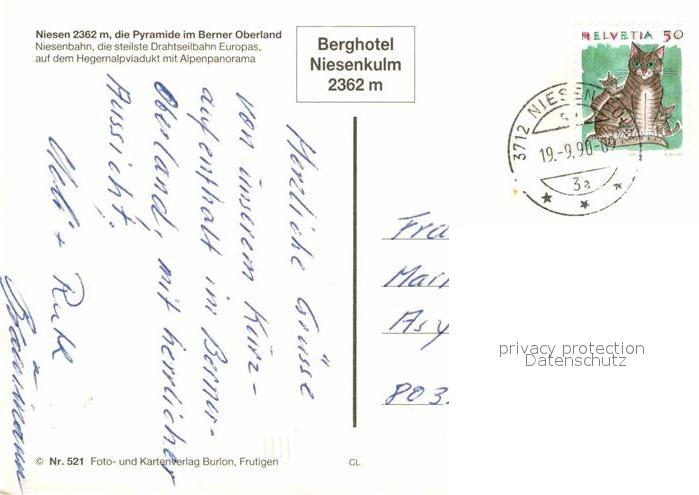 Niesen 2362 m, die Pyramide im Berner Oberland
Niesenbahn, die steilste Drahtseilbahn Europas,
auf dem Hegernalpviadukt mit Alpenpanorama
Berghotel
Niesenkulm
2362 m
HELVETIA 50
3712 NIESEN
19.-9.90-09
3a
Herzliche Grüsse
von unserem Kurz-
aufenthalt im Berner-
Oberland, mit herrlicher
Aussicht.
+ Ruth
Fra
Mar
Asy
803
privacy protection
Datenschutz
© Nr. 521 Foto- und Kartenverlag Burlon, Frutigen
CL